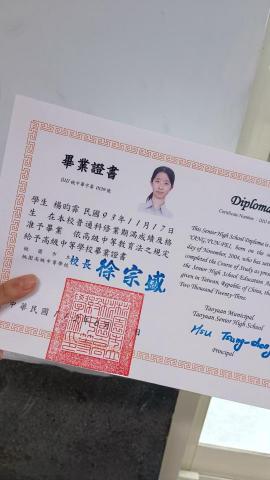 畢業證書
學生 楊昀霏 民國93年11月17日
生 在本校普通科修業期滿成績及格
准予畢業 依高級中等教育法之規定
給予高級中等學校畢業證書
桃園市立
桃園高級中等學校
校長 徐宗盛
中華民國
Diploma
Certificate Number
This Senior High School Diploma
YANG,YUN-FEI, born on the
day of November, 2004, who has
completed the Course of Study as
the Senior High School Education
given in Taiwan, Republic of China,
Two Thousand Twenty-Three.
Taoyuan Municipal
Taoyuan Senior High School
Principal